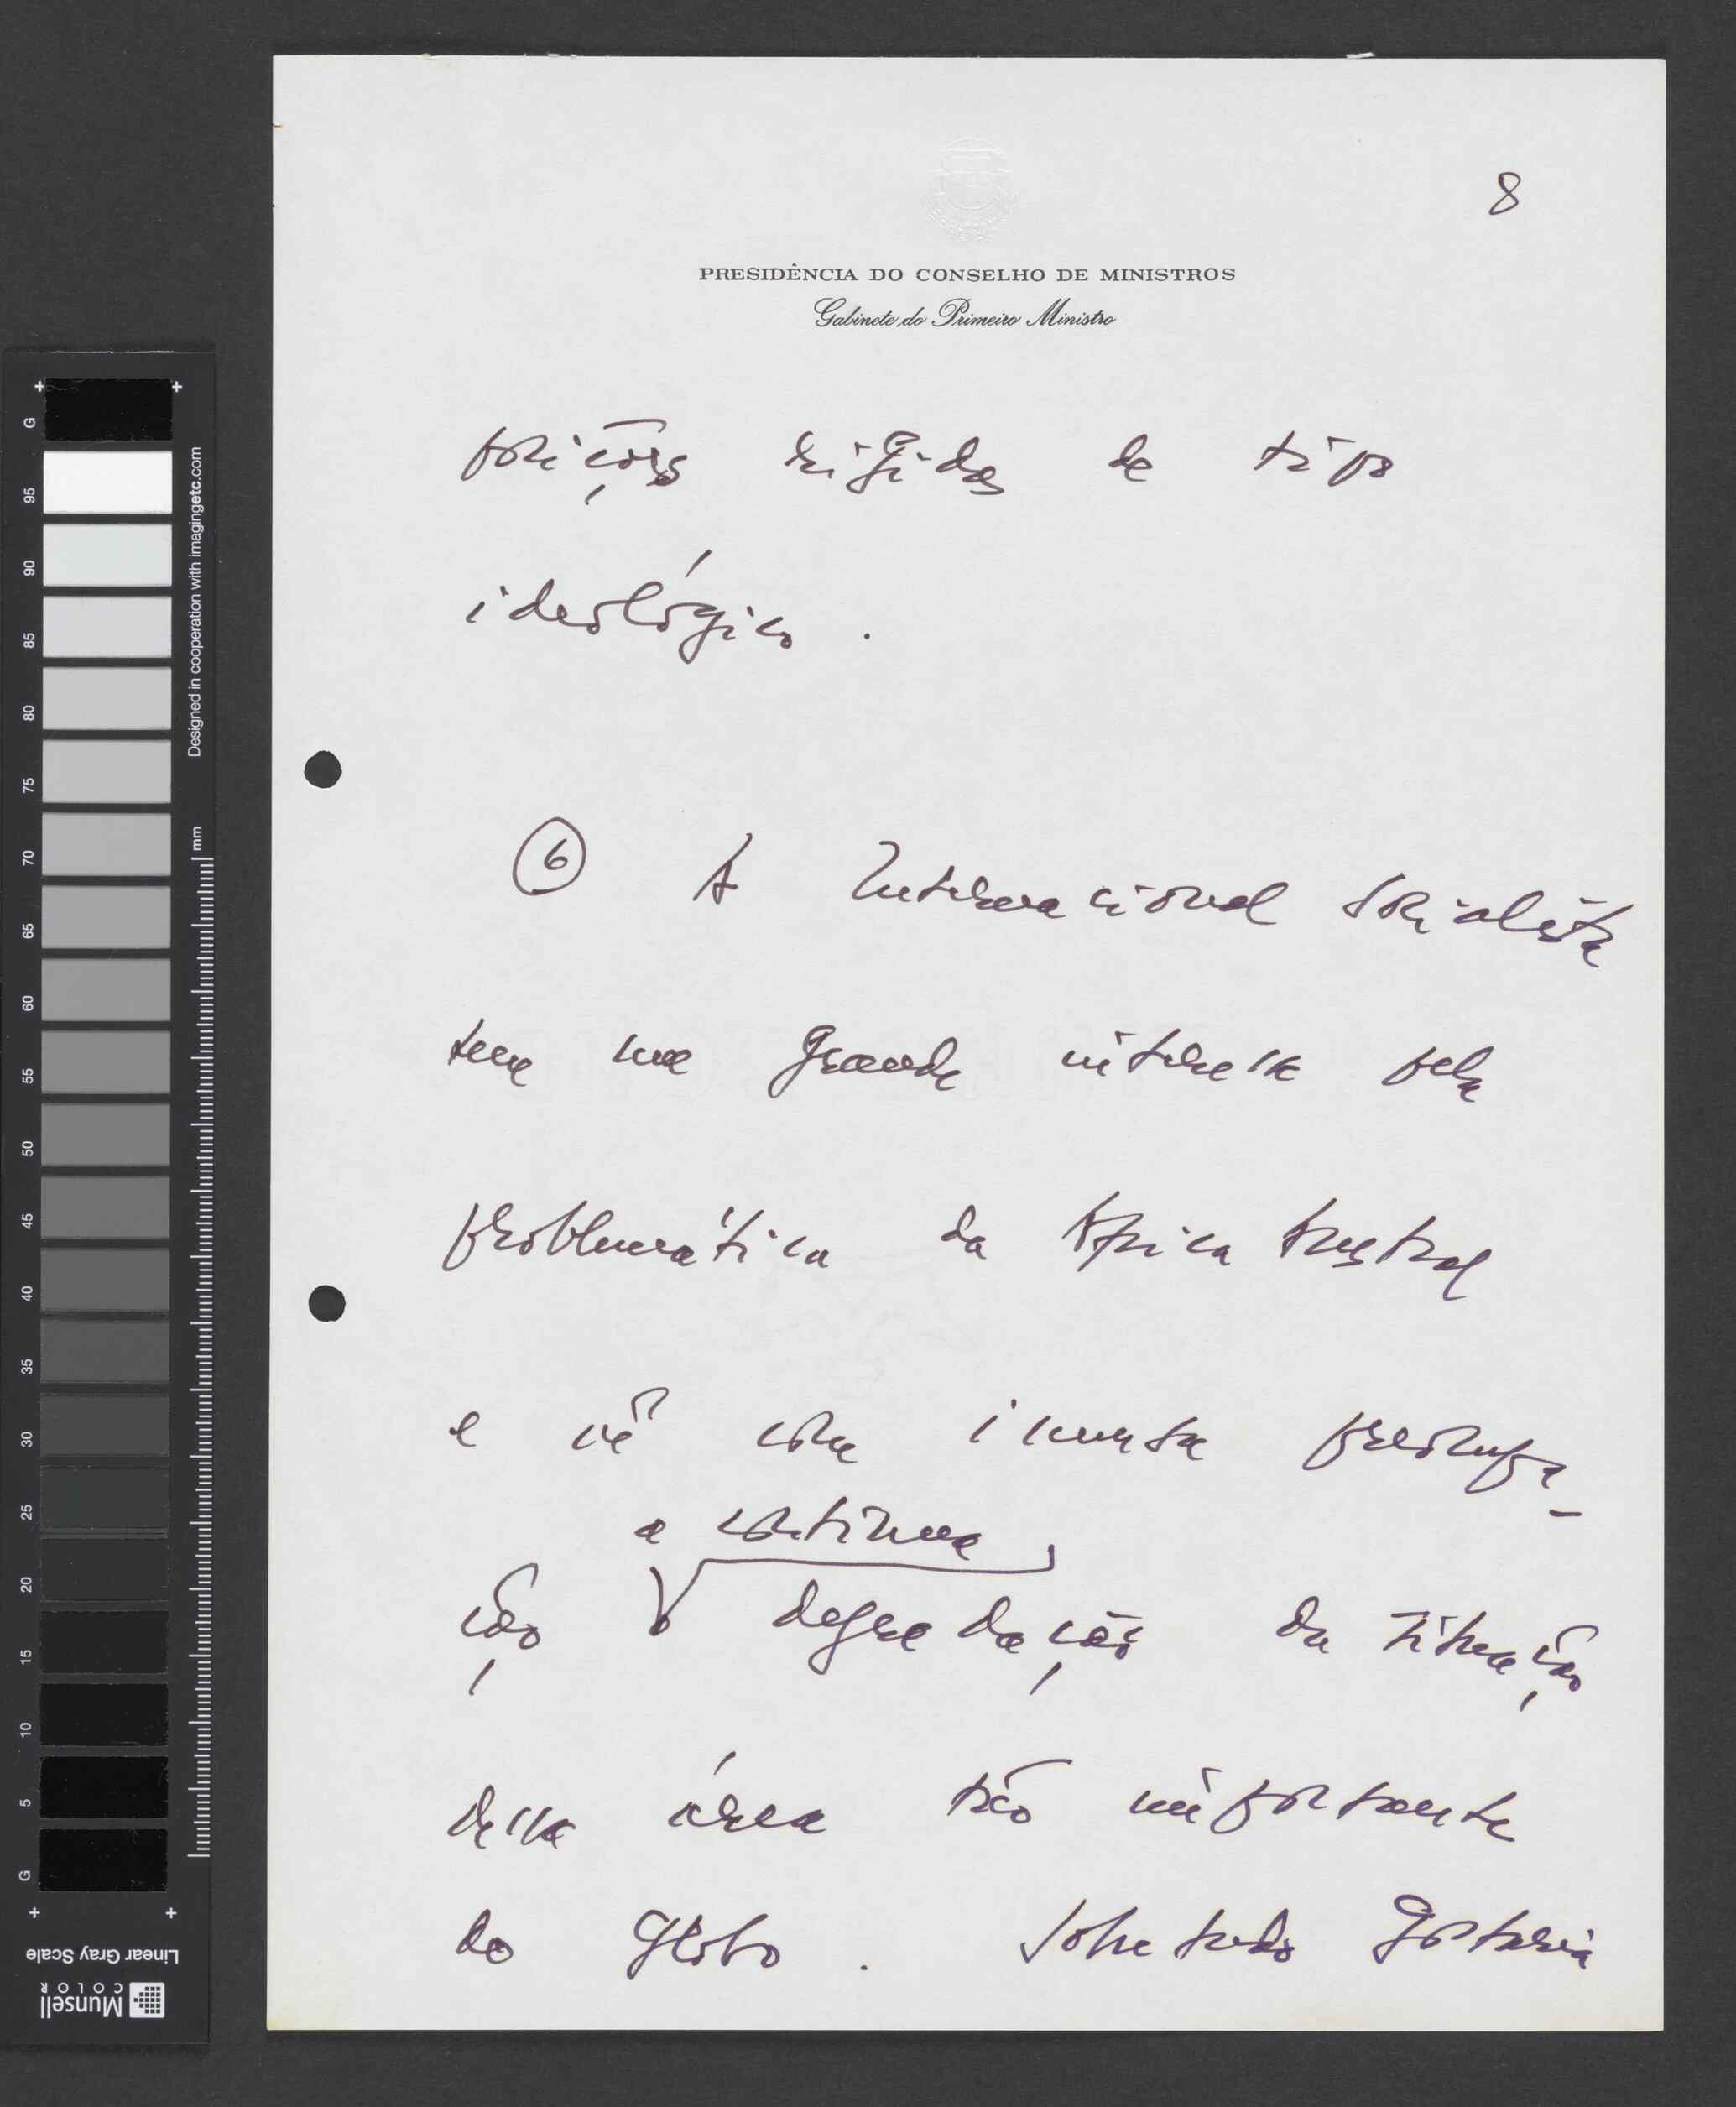 8
PRESIDÊNCIA DO CONSELHO DE MINISTROS
Gabinete do Primeiro Ministro
posições rígidas de tipo
ideológico.
6 A Internacional Socialista
tem um grande interesse pela
problemática da Africa Austral
e vê com imensa preocupa-
a contínua
ção degradação da situação
dessa área tão importante
do globo. Sobretudo gostaria
G
95
90
85
80
75
70
65
60
55
50
45
40
35
30
25
20
15
10
5
G
Designed in cooperation with imagingetc.com
mm
Linear Gray Scale
Munsell
COLOR